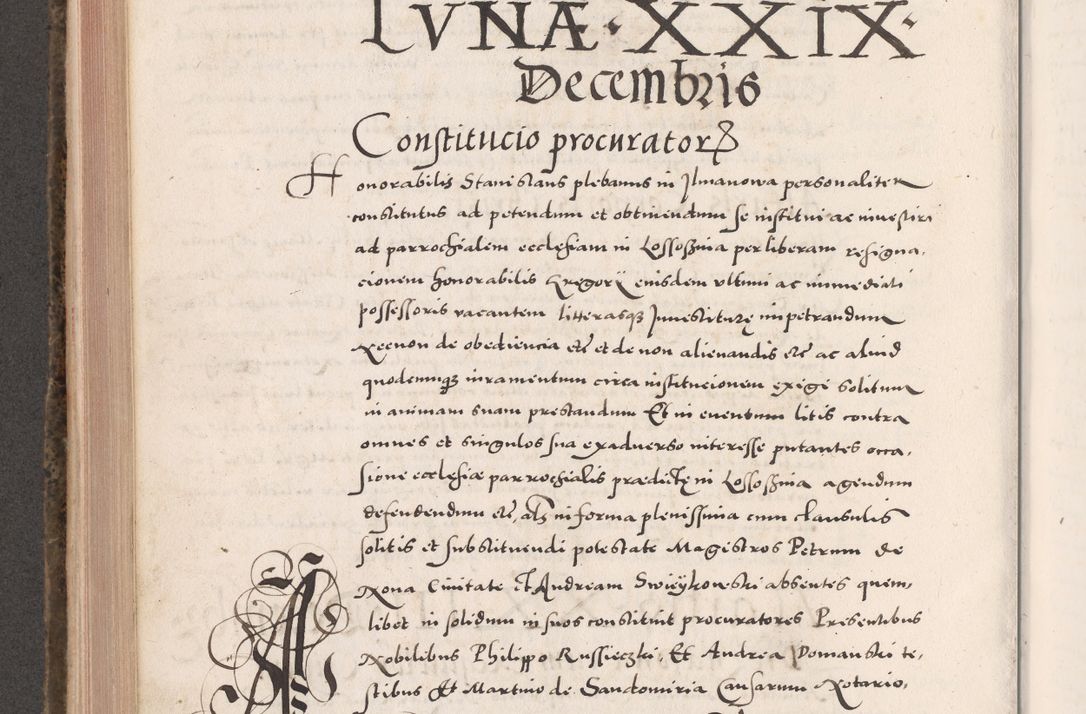 LVNÆ · XXIX ·
Decembris
Constitucio procuratorꝝ
Honorabilis Stanislaus plebanus in Jlmanowa personaliter
constitutus ad petendum et obtinendum se institui ac inuestiri
ad parrochialem ecclesiam in Lossosznia per liberam resigna,
cionem honorabilis Gregorÿ eiusdem vltimi ac immediati
possessoris vacantem litterasqȝ Juuestiturę impetrandum
Necnon de obediencia etc et de non alienandis etc ac aliud
quodcumqȝ iuramentum circa institucionem exigi solitum
in animam suam prestandum Et in euentum litis contra
omnes et singulos sua exaduerso interesse putantes occa,
sione ecclesiæ parrochialis prædictę in Lossosznia agendum
defendendum etc, als in forma plenissima cum clausulis
solitis et substituendi potestate Magistros Petrum de
Noua Ciuitate et Andream Swieÿkowski absentes quem,
libet in solidum in suos constituit procuratores Presentibus
Nobilibus Philippo Russieczki, Et Andrea Domanski te,
stibus Et Martino de Sandomiria Causarum Notario,